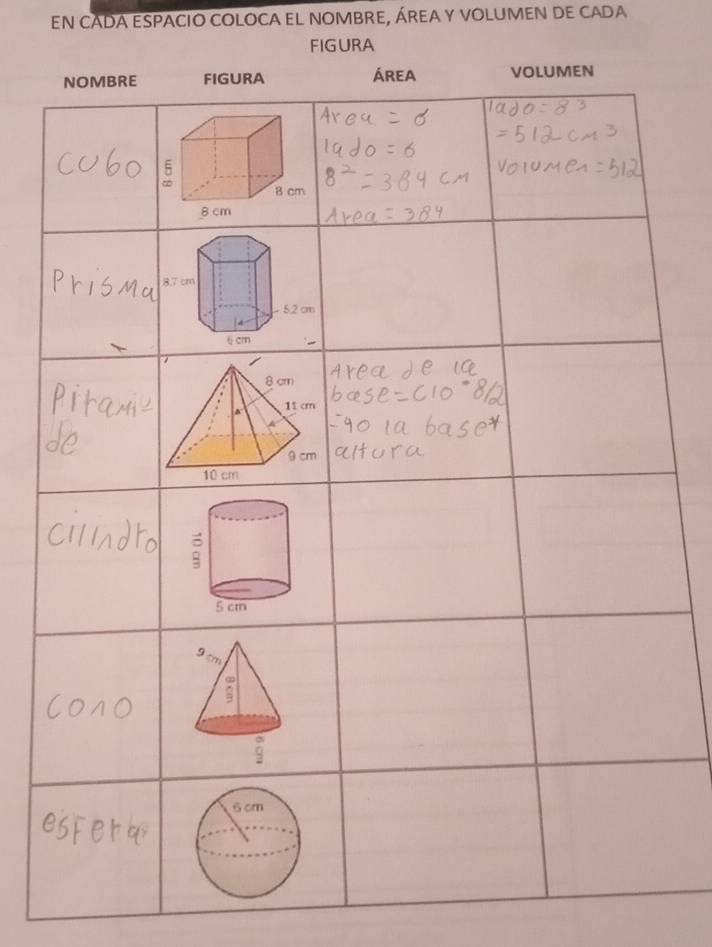 EN CADA ESPACIO COLOCA EL NOMBRE, ÁREA Y VOLUMEN DE CADA
FIGURA
NOMBRE FIGURA ÁREA VOLUMEN
cubo
8 cm
8 cm
8 cm
Area = 6
lado = 6
8² = 384 cm
Area = 384
lado = 8 3
= 512 cm 3
volumen = 512
Prisma
8.7 cm
5.2 cm
6 cm
Piramiu
de
8 cm
11 cm
9 cm
10 cm
Area de la
base = (10 * 8/2
= 90 la base *
altura
cilindro
10 cm
5 cm
cono
9 cm
8 cm
6 cm
esferas
6 cm